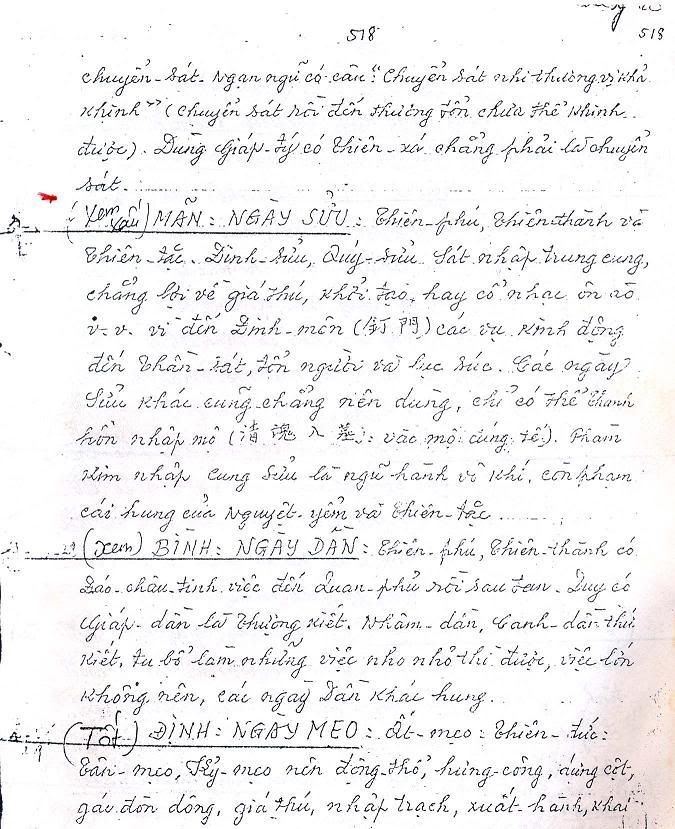 518 518
chuyển-sát. Ngạn ngữ có câu "Chuyển sát nhi thương vị khả
khinh" (chuyển sát rồi đến thương tổn chưa thể khinh
được). Dùng Giáp-tý có thiên-xá chẳng phải là chuyển
sát.
(Xem xấu) MÃN: NGÀY SỬU: Thiên-phú, thiên-thành và
Thiên-tặc. Đinh-sửu, Quý-sửu sát nhập trung cung,
chẳng lợi về giá thú, khởi tạo, hay cổ nhạc ồn ào
v.v. vì đến Đinh-môn (釘門) các vụ kinh động
đến thần-sát, tổn người và lục súc. Các ngày
Sửu khác cũng chẳng nên dùng, chỉ có thể thanh
hồn nhập mộ (清魂入墓: vào mộ cúng tế). Phàm
kim nhập cung Sửu là ngũ hành vô khí, còn phạm
cái hung của Nguyệt-yểm và Thiên-tặc
(Xem) BÌNH: NGÀY DẦN: Thiên-phú, Thiên-thành có
Đáo-châu-tinh việc đến Quan-phủ rồi sau tan. Duy có
Giáp-dần là thượng kiết. Nhâm-dần, Canh-dần thứ
kiết, tu bổ làm những việc nho nhỏ thì được, việc lớn
không nên, các ngày Dần khác hung.
(Tốt) ĐỊNH: NGÀY MẸO: Ất-mẹo: Thiên-đức:
Tân-mẹo, Kỷ-mẹo nên động-thổ, hưng-công, dựng cột,
gác đòn dông, giá thú, nhập trạch, xuất-hành, khai